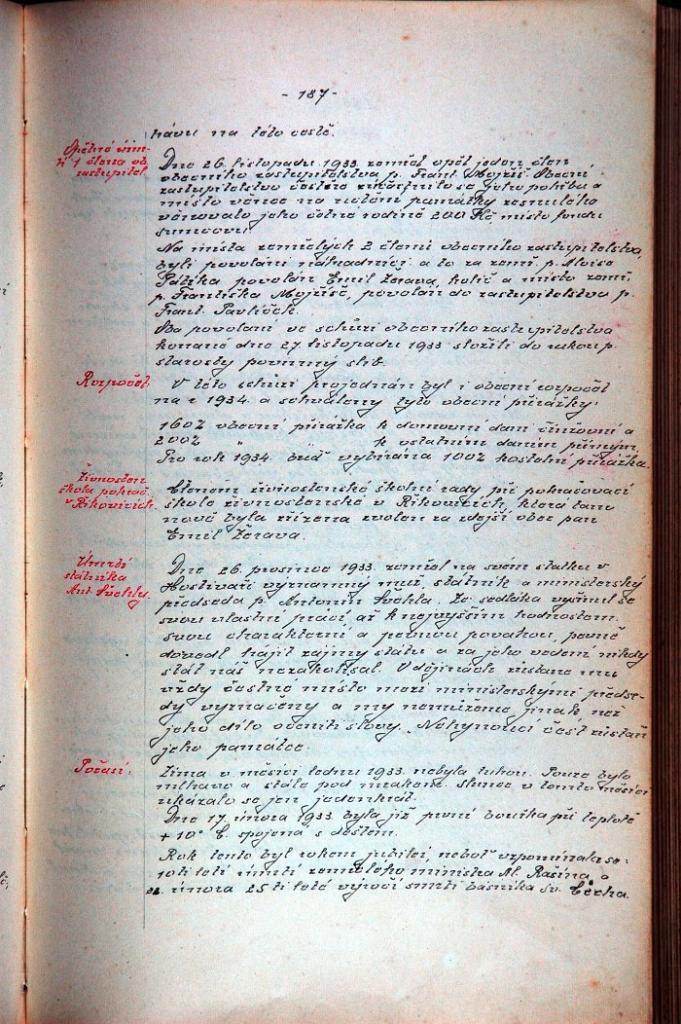 - 187 -
návu na této cestě.
Opětné úmr-
tí 1 člena ob.
zastupitel.
Dne 26. listopadu 1933 zemřel opět jeden člen
obecního zastupitelstva p. Frant. Mojžíš. Obecní
zastupitelstvo čestně zúčastnilo se jeho pohřbu a
místo věnce na uctění památky zesnulého
věnovalo jeho četné rodině 200 Kč místo
Na místa zemřelých 2 členů obecního zastupitelstva,
byli povoláni náhradníci a to za zemř. p. Aloise
povolán Emil Žerava, holič a místo zemř.
p. Františka Mojžíše, povolán do zastupitelstva p.
Frant. Pavlíček.
Na povolání ve schůzi obecního zastupitelstva
konané dne 27. listopadu 1933 složili do rukou p.
starosty povinný slib.
Rozpočet.
V této schůzi projednán byl i obecní rozpočet
na r. 1934. a schváleny tyto obecní přirážky:
160% obecní přirážka k domovní dani činžovní a
200% " " k ostatním daním přímým.
Pro rok 1934 buď vybírána 100% kostelní přirážka.
Živnosten.
škola pokrač.
v Říkovicích.
Členem živnostenské školní rady při pokračovací
škole živnostenské v Říkovicích, která tam
nově byla zřízena zvolen za zdejší obec pan
Emil Žerava.
Úmrtí
státníka
Ant. Švehly.
Dne 26. prosince 1933. zemřel na svém statku v
Hostivaři významný muž státník a ministerský
předseda p. Antonín Švehla. Ze sedláka vyšinul se
svou vlastní prací až k nejvyšším hodnostem.
svou charakterní a pevnou povahou, pevně
dovedl hájit zájmy státu a za jeho vedení nikdy
stát náš nezakolísal. V dějinách zůstane mu
vždy čestné místo mezi ministerskými předse-
dy vyznačeny a my nemůžeme jinak než
jeho dílo oceniti slovy. "Nehynoucí čest zůstaň
jeho památce.
Počasí:
Zima v měsíci lednu 1933. nebyla tuhou. Pouze bylo
mlhavo a stále pod mrakem. Slunce v tomto měsíci
ukázalo se jen jedenkrát.
Dne 17. února 1933 byla již první bouřka při teplotě
+ 10° C. spojená s deštěm.
Rok tento byl rokem jubileí, neboť vzpomínala se
10ti letí úmrtí zemřelého ministra Al. Rašína a
února 25ti leté výročí smrti básníka Sv. Čecha.